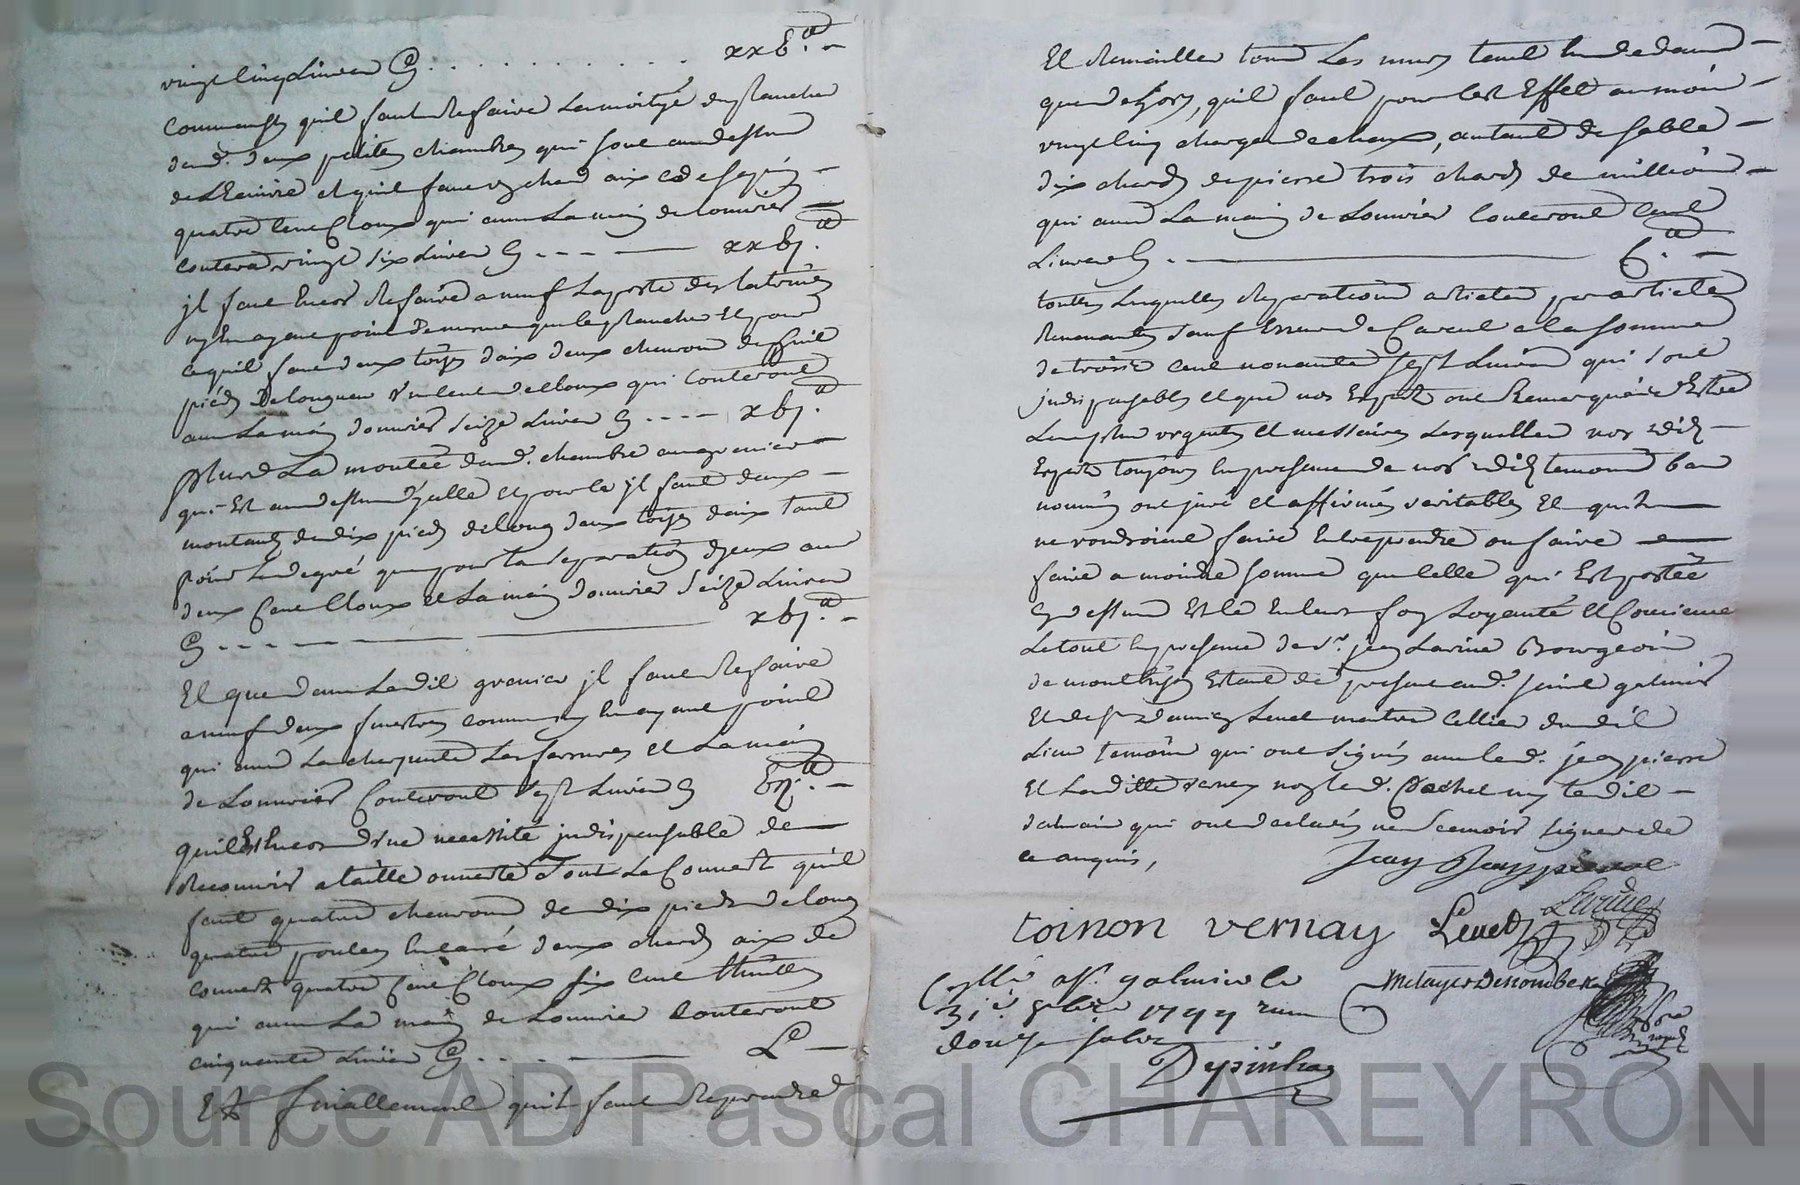 vingt cinq Livres Cy . . . . . . . . . . . xxb.ᵗᵗ –
Comme aussy quil faut Refaire La moityé du plancher
desd. deux petites chambres qui sont au dessus
de Lecuirie et quil faut
quatre cent Cloux qui avec La main de Louvrier –
couteras vingt six Livres Cy . . . – xxbj.ᵗᵗ
jl faut Encor Refaire a neuf La porte des latrines
ny En ayant point de mesme que le plancher Et pour
ce quil faut deux toises daix deux chevrons de
pieds De longueur & un cent de Cloux qui Couteront
avec La main douvrier seize Livres Cy . . . . – xbj.ᵗᵗ
plus La montée dud. chambre au grenier –
qui Est au dessus dycelle Et pour ce jl faut deux –
montants de dix pieds de long deux toises daix tant
pour Le degré que pour La separation dyceux avec
deux Cent Cloux et La main douvrier seize Livres
Cy . . . . – xbj.ᵗᵗ –
Et que dans Ledit grenier jl faut Refaire
a neuf deux fenestres comme ny En ayant point
qui avec La charpente Les ferrures et La main
de Louvrier Couteront sept Livres Cy bij.ᵗᵗ –
quil Est Encor d'une necessité jndispensable de –
Recouvrir a taille ouverte Tout Le Couvert quil
faut quatre chevrons de dix pieds de long
quatre poutes En carré deux chards aix de
couvert quatre Cent Cloux six cent thuilles
qui avec La main de Louvrier Couteront
cinquante Livres Cy . . . . – L.ᵗᵗ –
Et finallement quil faut Reprendre
Et Remailler tous Les murs tant En dedans –
que dehors, quil faut pour cet Effet au moin –
vingt cinq charges de chaux, autant de sable –
dix chards de pierre trois chards de million –
qui avec La main de Louvrier Couteront Cent
Livres Cy . – C.ᵗᵗ –
toutes Lesquelles Reparations articles par articles
Revenantes sauf Erreur de Calcul a la somme
de trois cent nonante sept Livres qui sont
jndispensables et que nos Experts ont Remarquée Estre
Les plus urgentes Et nessaires Lesquelles nos Dits –
Experts toujours En presence de nos Dits temoins bas
nommés ont juré et affirmés veritables Et quils –
ne voudroient faire Entreprendre ou faire –
faire a moindre somme que celle qui Est portée
Cy dessus Et ce En leur foy Loyauté et Concience
Le tout En presence de sʳ. jean Larive Bourgeois
de montbrison Estant de present aud. saint galmier
Et de sʳ damien Level maitre Cellier dudit
Lieu temoins qui ont signés avec led. jean pierre
Et Laditte vernay non led. Rachel ny Ledit –
dalmais qui ont declarés ne scavoir signer de
ce enquis,
Jean Jean pierre
Larive
toinon vernay Levet
Cllé a sᵗ. galmier le
Metayer Descombes
31ᵉ 8bre 1744 recu
douze sols
Depinhac